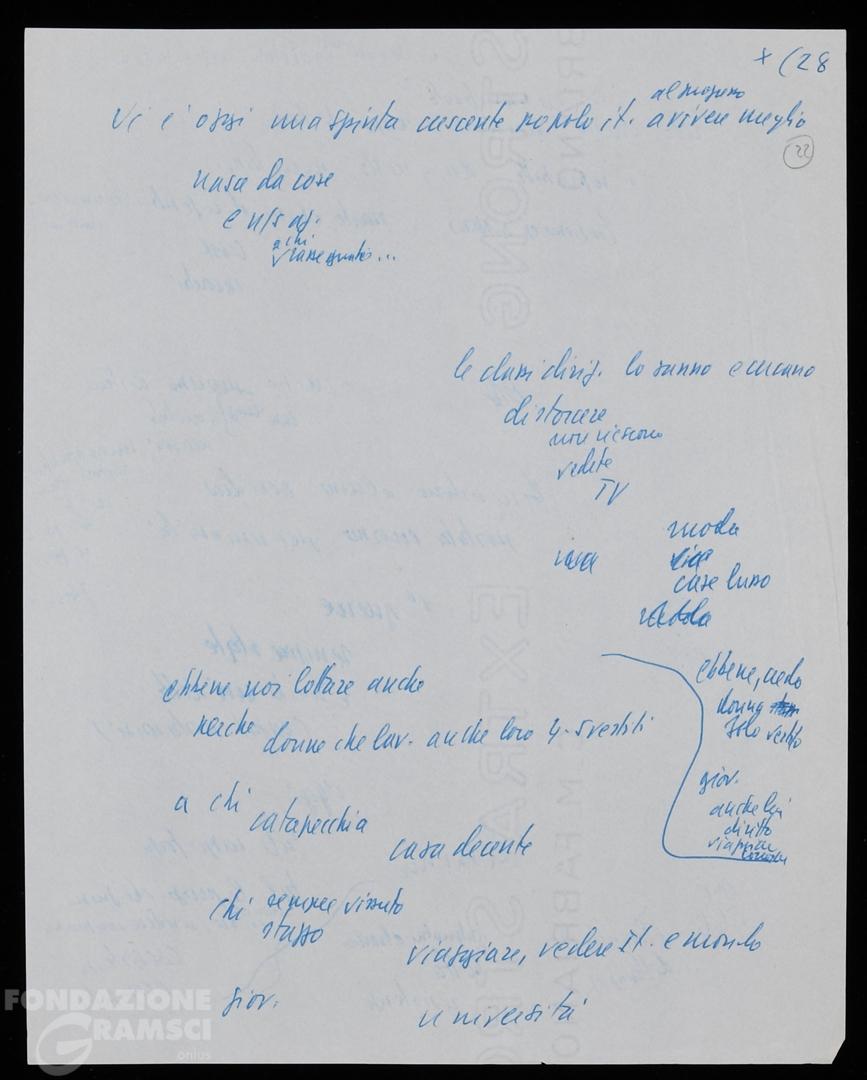 + (28
al progresso
Vi è oggi una spinta crescente popolo it. a vivere meglio
22
nasce da cose
e n/s az.
a chi
rassegnato...
le classi dirig. lo sanno e cercano
distorcere
non riescono
vedete
TV
moda
case lusso
ebbene noi lottare anche
perché
donne che lav. anche loro 4-5 vestiti
a chi
catapecchia
casa decente
chi sempre vissuto
stesso
viaggiare, vedere It. e mondo
giov.
università
ebbene, vedo
donna
solo vestito
giov.
anche lui
diritto
viaggiare
FONDAZIONE
GRAMSCI
onlus